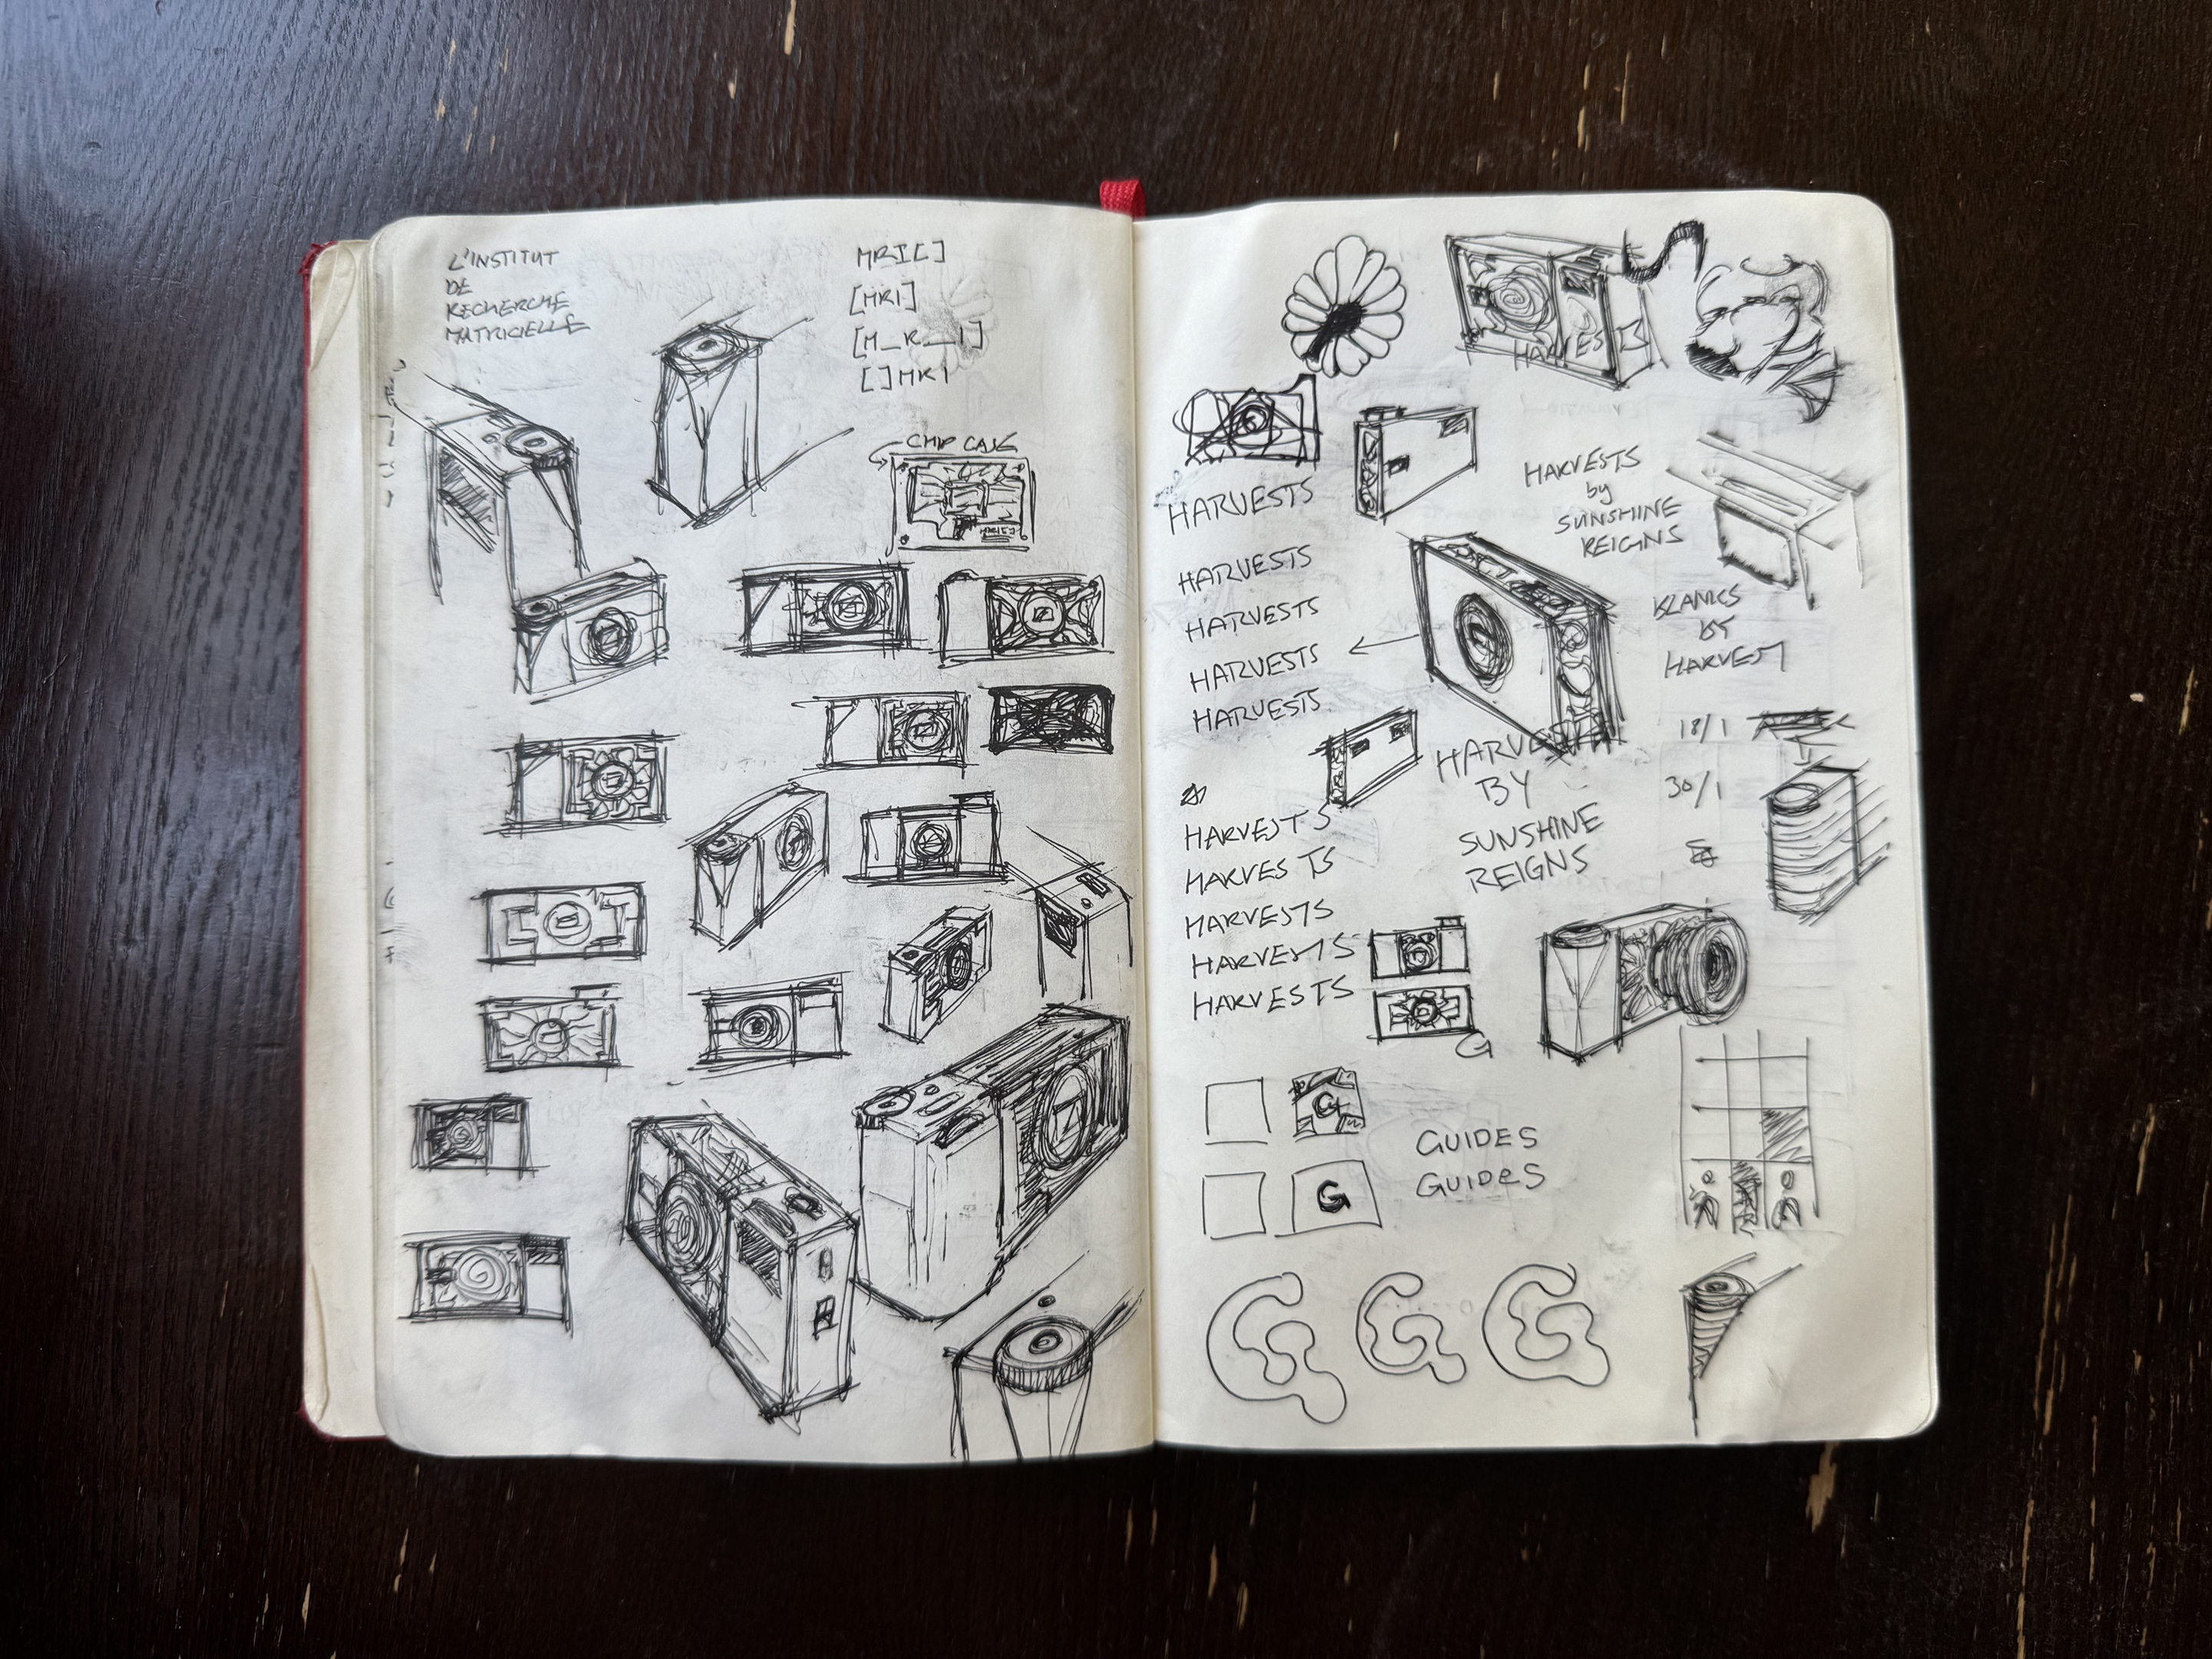 L'INSTITUT
DE
RECHERCHE
MATRICIELLE
MRI[]
[MRI]
[M_R__I]
[]MRI
CHIP
HARVESTS
HARVESTS
HARVESTS
HARVESTS
HARVESTS
HARVESTS
by
SUNSHINE
REIGNS
BY
HARVEST
18/1
30/1
HARVESTS
BY
SUNSHINE
REIGNS
HARVESTS
HARVESTS
HARVESTS
HARVESTS
HARVESTS
G
G
GUIDES
GUIDES
G
G G G